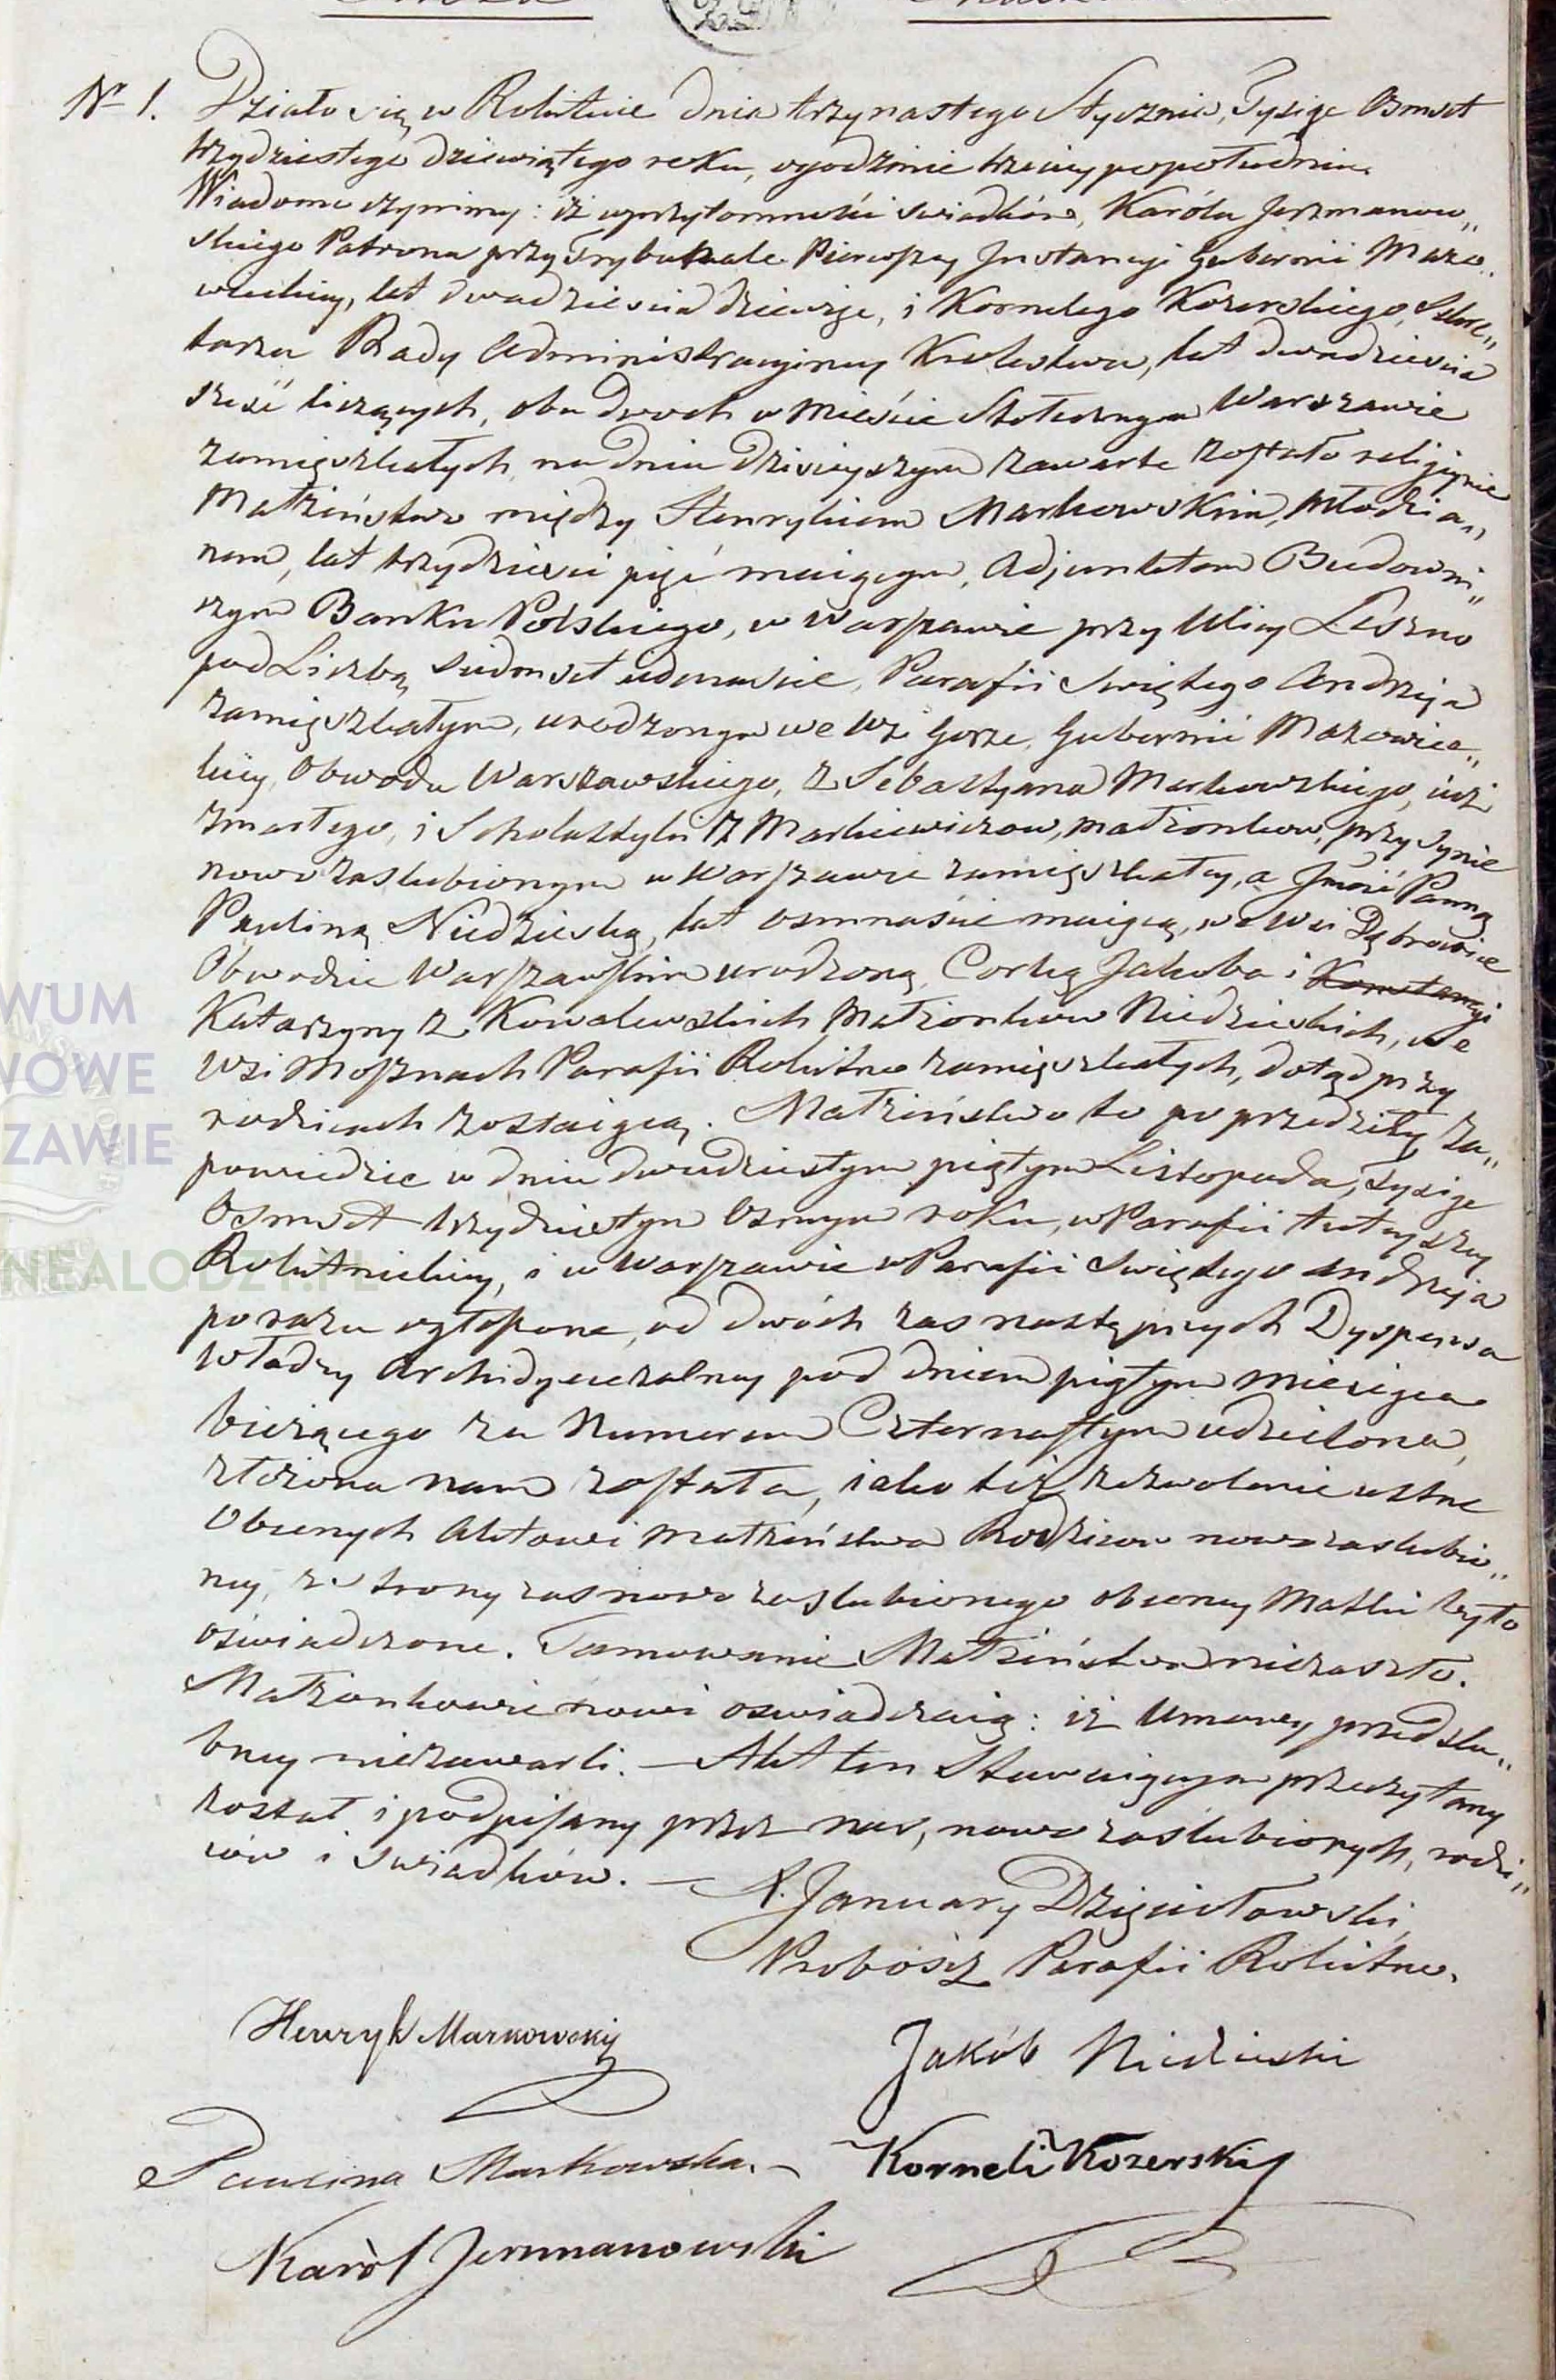 Nr 1. Działo się w Rokitnie dnia trzynastego Stycznia, Tysiąc Osmset
trzydziestego dziewiątego roku, ogodzinie trzeciey popołudniu.
Wiadomo czynimy: iż wprzytomności swiadków, Karóla Jerzmanow„
skiego Patrona przy Trybunale Pierwszey Instancyi Gubernii Mazo„
wieckiey, lat dwadziescia dziewięc, i Kornelego Kozerskiego, Sekre„
tarza Rady Administracyiney Krolestwa, lat dwadziescia
sześć liczących, obu dwoch w Mieście Stołecznym Warszawie
zamięszkałych, na dniu dzisieyszym zawarte zostało religiynie
Małżeństwo między Henrykiem Markowskim, Młodzia„
nem, lat trzydzieści pięć maiącym, Adjunktem Budowni„
czym Banku Polskiego, w Warszawie przy Ulicy Leszno
pod Liczbą siedmset iedenaście, Parafii Swiętego Andrzeja
zamięszkałym, urodzonym we Wsi Gorze, Gubernii Mazowiec„
kiey, Obwodu Warszawskiego, z Sebastyana Markowskiego, iuż
zmarłego, i Scholastyki z Markiewiczow, małżonkow, przy Synie
nowo zaslubionym w Warszawie zamięszkałey, a Jmość Panną
Pauliną Niedzieską, lat osmnaście maiącą, we Wsi Dąbrowice
Obwodzie Warszawskim urodzoną, Corką Jakoba i Konstancyi
Katarzyny z Kowalewskich, Małżonkow Niedzieskich, we
Wsi Mosznach Parafii Rokitno zamięszkałych, dotąd przy
rodzicach zostaiącą. Małżeństwo to poprzedziły Za„
powiedzie w dniu dwudziestym piątym Listopada, tysiąc
Osmset trzydziestym Osmym roku, w Parafii tuteyszey
Rokitnickiey, i w Warszawie w Parafii Swiętego Andrzeja
po razu ogłoszone, od dwóch zas następnych Dyspensa
Władzy Archidyecezalney pod dniem piątym miesiąca
bieżącego za Numerem Czternastym udzielona,
złożona nam została, iako też zezwolenie ustne
Obecnych Aktowi małżeństwa Rodzicow nowozaslubio„
ney, ze strony zas nowo zaslubionego obecney Matki było
oświadczone. Tamowanie Małżeństwa niezaszło.
Małżonkowie nowi oswiadczaią: iż Umowy przedslu„
bney niezawarli. — Akt ten Stawaiącym przeczytany
został i podpisany przez nas, nowo zaślubionych, rodzi„
ców i swiadków. —
X. January Dzięciołowski,
Proboszcz Parafii Rokitno.
Henryk Markowski
Jakób Niedzieski
Paulina Markowska. –
Korneli Kozerski
Karòl Jerzmanowski
WUM
WOWE
ZAWIE
NEALODZI.PL